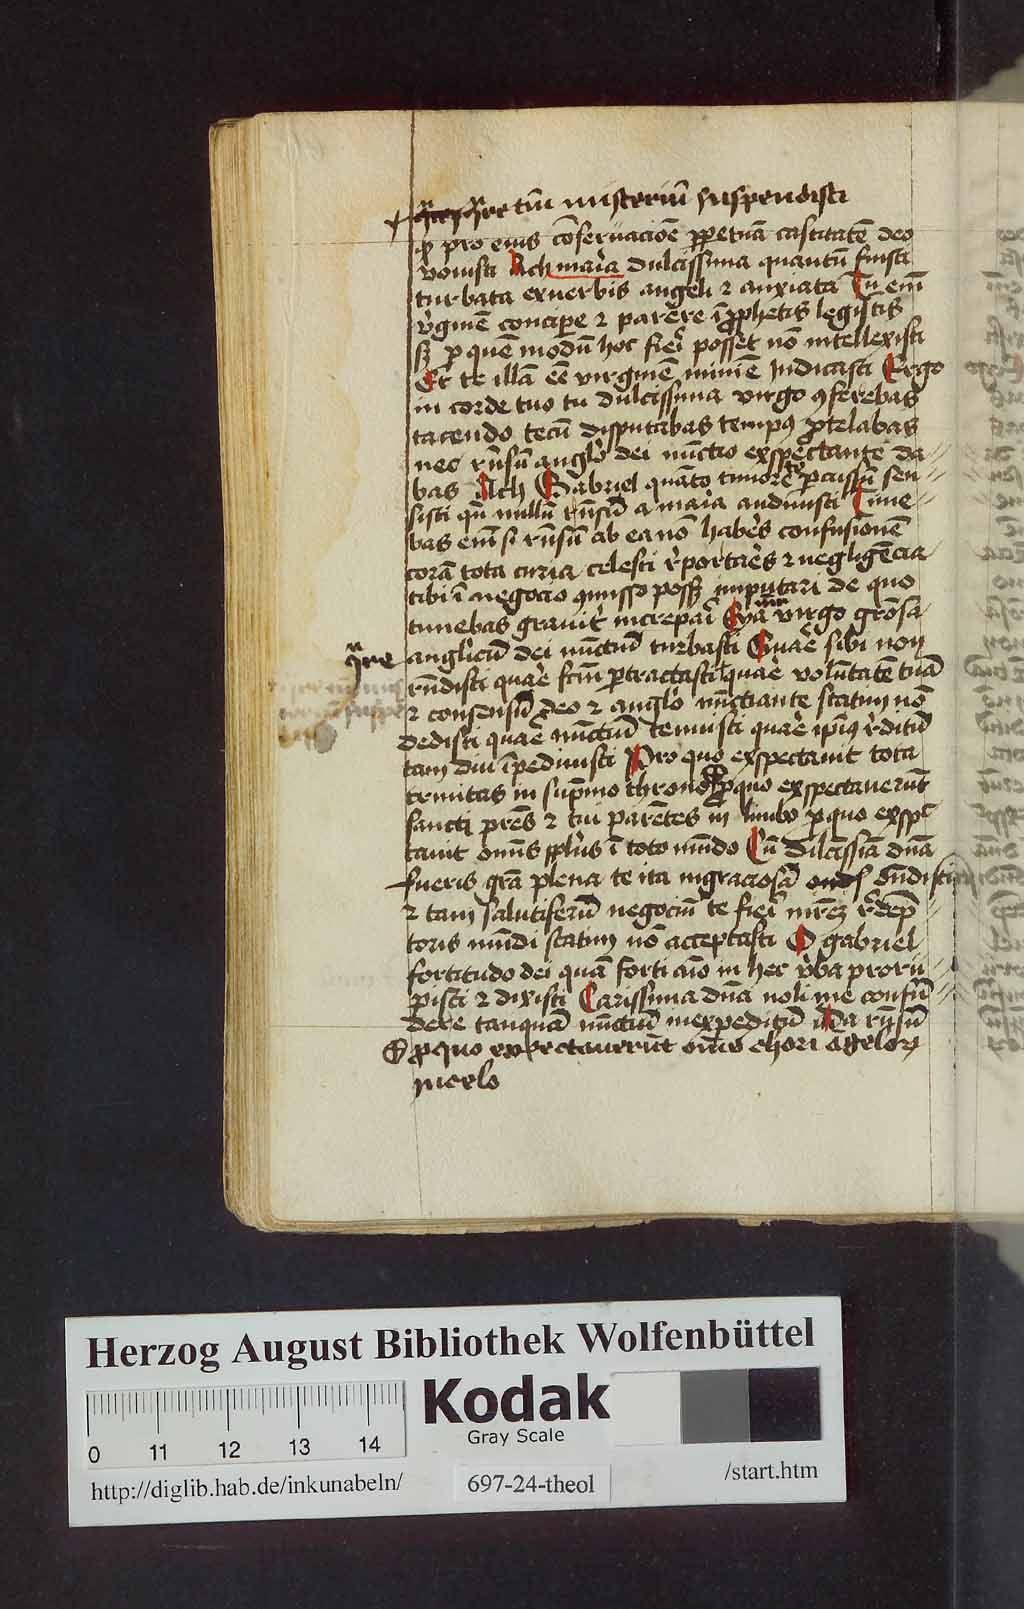 quare tm̄ misteriū suspendisti
ꝙ pro eius cōseruacōe ꝑpetuā castitatē deo
vouisti Ach maria dulcissima quantū fuisti
turbata ex verbis angeli ⁊ anxiata Tu em̄
v'ginē concipe ⁊ parere ī ꝓphetis legistis
sꝫ ꝑ quē modū hoc fieri posset nō intellexisti
Et te illā eē virginē minīe Iudicasti Ergo
in corde tuo tu dulcissima virgo ꝯferebas
tacendo tecū disputabas tempꝰ ꝓtelabas
nec rn̄sū anglo dei nūctio exspectante da
bas Ach Gabriel quāto timore te ꝑcussū sen
sisti qn̄ nullū rn̄sum a maria audiuisti Time
bas em̄ si rn̄sū ab ea nō haberes confusionē
corā tota curia celesti r'portares ⁊ negligēcia
tibi ī negocio ꝯmisso possꝫ imputari de quo
timebas grauit' increpari Eya virgo grōsa
anglicū dei nūctiū turbasti Quare sibi non
quare
rn̄disti quare fcm̄ ꝑtractasti quare volūtatē tuā
⁊ consensū deo ⁊ anglo nūctiante statim nō
dedisti quare nūctiū tenuisti quare ipiꝰ r'ditū
tam diu īpediuisti Pro quo exspectauit tota
trinitas in sup̄mo throno ꝓ quo exspectauerūt
sancti pr̄es ⁊ tui parētes in limbo ꝓ quo exspec
tauit omīs ppl's ī toto mūdo Cū dulcissīa dn̄a
fueris grā plena te ita ingraciosā ondisti
⁊ tam salutiferū negociū te fieri mr̄eꝫ r'demp
toris mūdi statim nō acceptasti O gabriel
fortitudo dei quā forti aīo in hec v'ba proru
pisti ⁊ dixisti Carissima dn̄a noli me confū
dere tanquā nūctiū inexpeditū Da rn̄sū
ꝓ quo expectauerūt omēs chori āgeloꝝ
in celo
Herzog August Bibliothek Wolfenbüttel
0 11 12 13 14
Kodak
Gray Scale
http://diglib.hab.de/inkunabeln/
697-24-theol
/start.htm